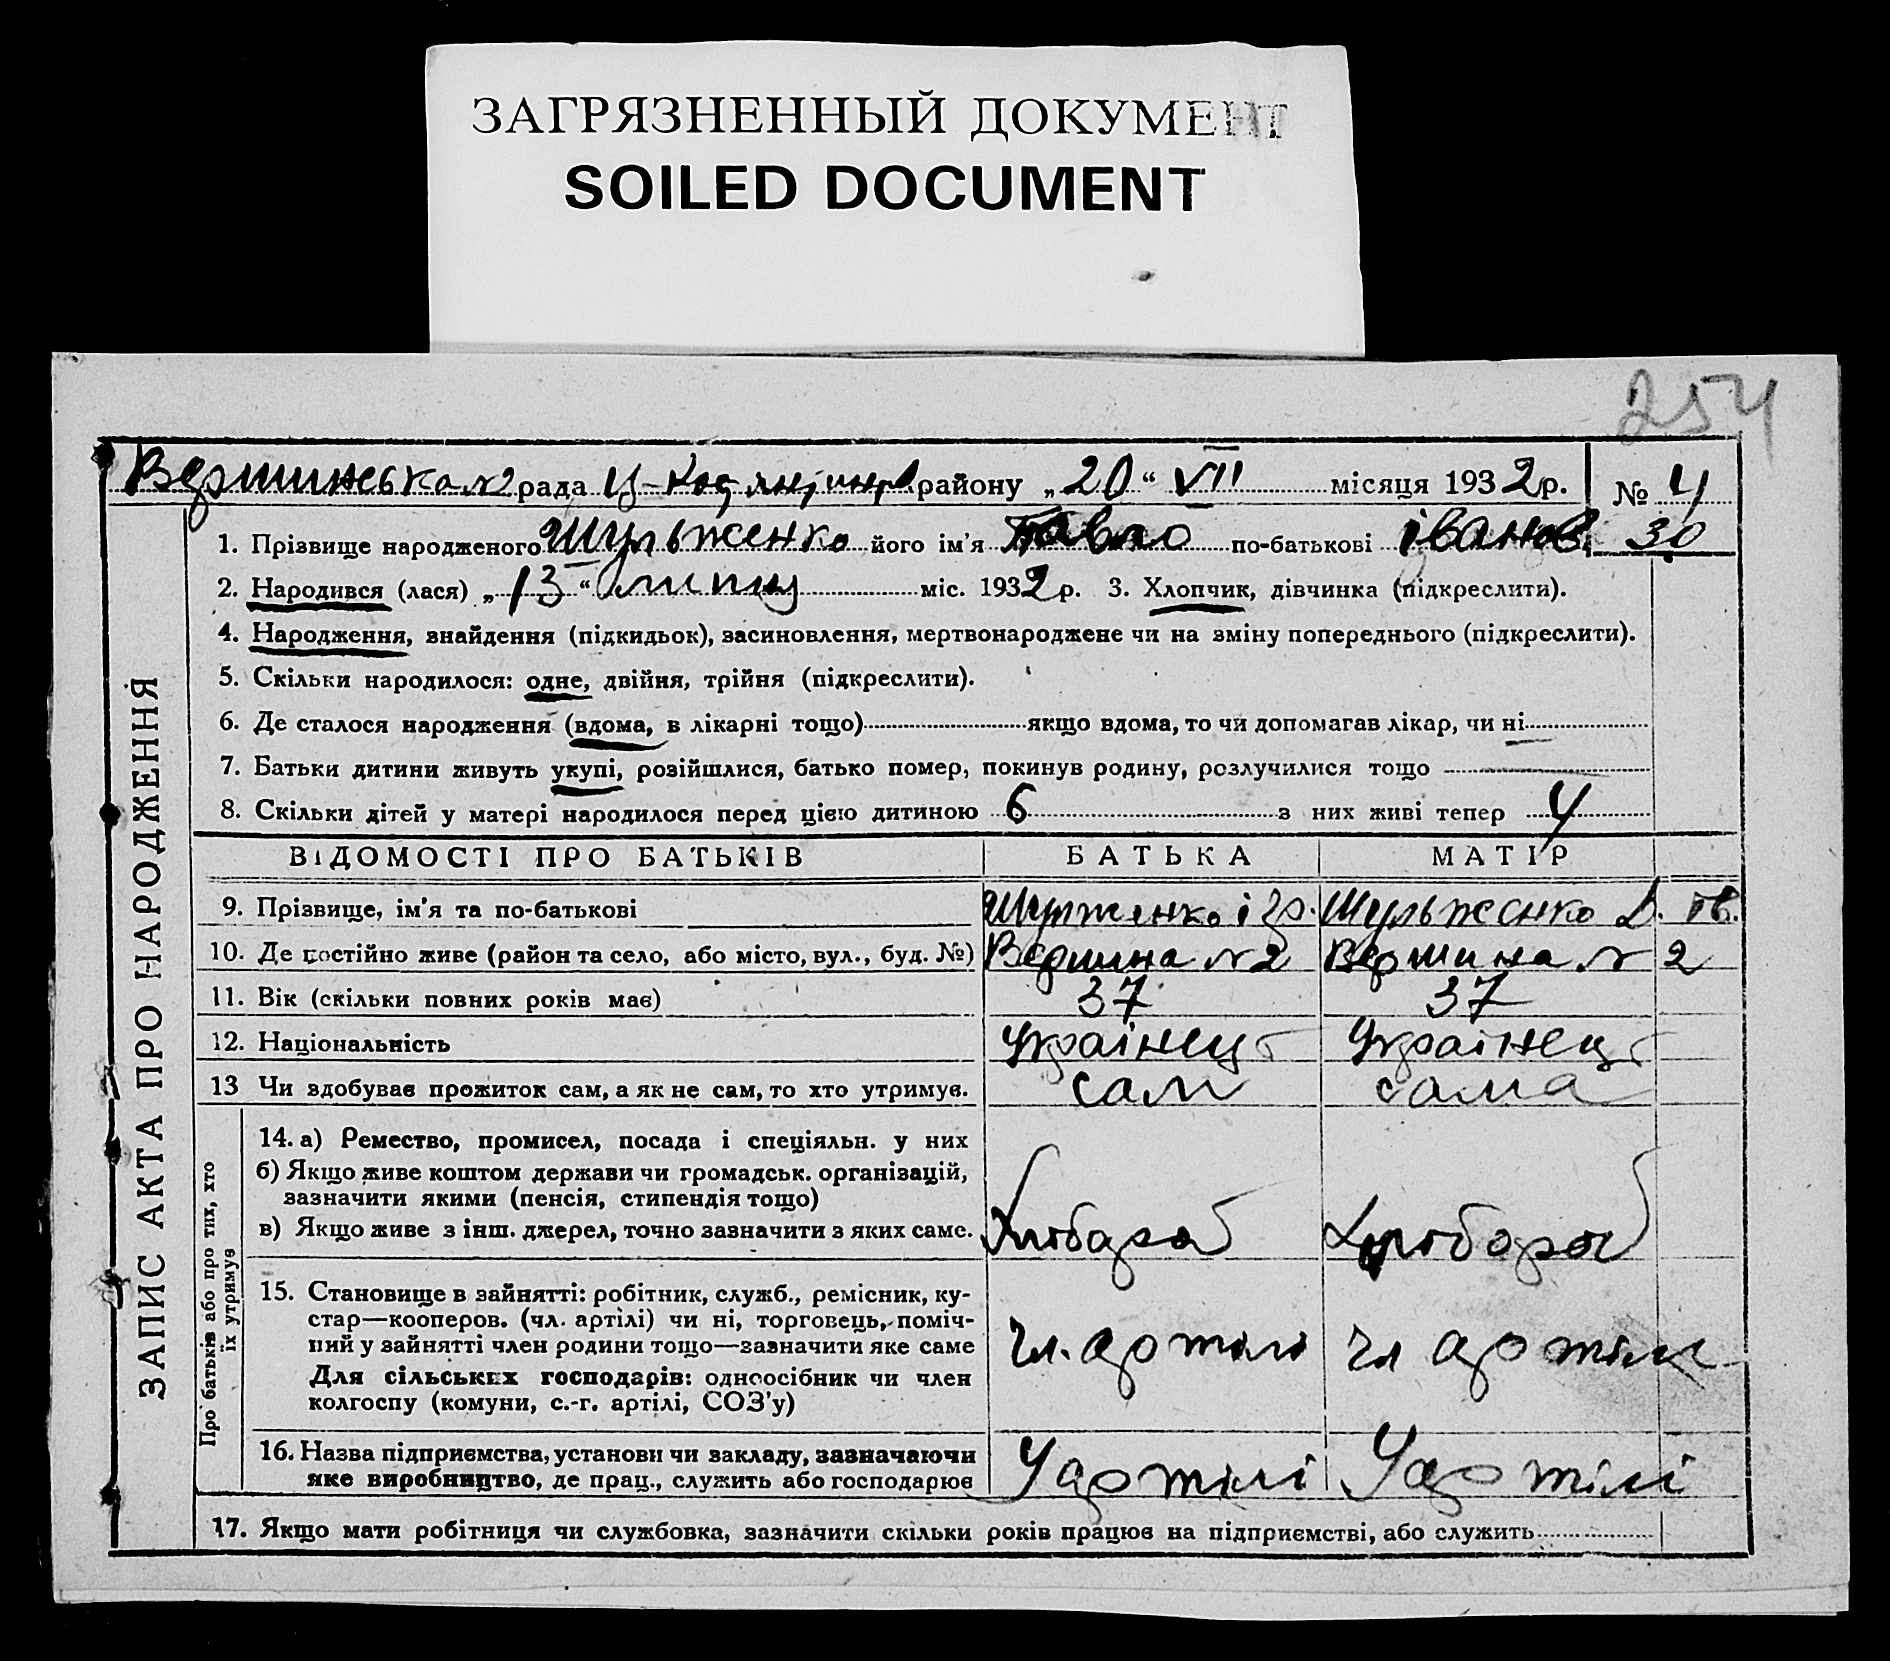 ЗАГРЯЗНЕННЫЙ ДОКУМЕНТ
SOILED DOCUMENT
254
Вершинська №2 рада района „20“ VII місяця 1932 р. № 4
30
1. Прізвище народженого Шульженко його ім'я Павло по-батькові Іванов.
2. Народився (лася) „13“ липня міс. 1932 р. 3. Хлопчик, дівчинка (підкреслити).
4. Народження, знайдення (підкидьок), засиновлення, мертвонароджене чи на зміну попереднього (підкреслити).
5. Скільки народилося: одне, двійня, трійня (підкреслити).
6. Де сталося народження (вдома, в лікарні тощо) якщо вдома, то чи допомагав лікар, чи ні
7. Батьки дитини живуть укупі, розійшлися, батько помер, покинув родину, розлучилися тощо
8. Скільки дітей у матері народилося перед цією дитиною 6 з них живі тепер 4
ВІДОМОСТІ ПРО БАТЬКІВ БАТЬКА МАТІР
9. Прізвище, ім'я та по-батькові Шульженко Шульженко
10. Де постійно живе (район та село, або місто, вул., буд. №) Вершина №2 Вершина № 2
11. Вік (скільки повних років має) 37 37
12. Національність Українець Українець
13 Чи здобуває прожиток сам, а як не сам, то хто утримує. сам сама
ЗАПИС АКТА ПРО НАРОДЖЕННЯ
Про батьків або про тих, хто
їх утримує
14. а) Ремество, промисел, посада і спеціяльн. у них
б) Якщо живе коштом держави чи громадськ. організацій,
зазначити якими (пенсія, стипендія тощо)
в) Якщо живе з інш. джерел, точно зазначити з яких саме. Хлібороб Хлібороб
15. Становище в зайнятті: робітник, служб., ремісник, ку-
стар—кооперов. (чл. артілі) чи ні, торговець, поміч-
ний у зайнятті член родини тощо—зазначити яке саме чл. артілі чл артілі
Для сільських господарів: одноосібник чи член
колгоспу (комуни, с.-г. артілі, СОЗ'у)
16. Назва підприємства, установи чи закладу, зазначаючи
яке виробництво, де прац., служить або господарює У артілі У артілі
17. Якщо мати робітниця чи службовка, зазначити скільки років працює на підприємстві, або служить